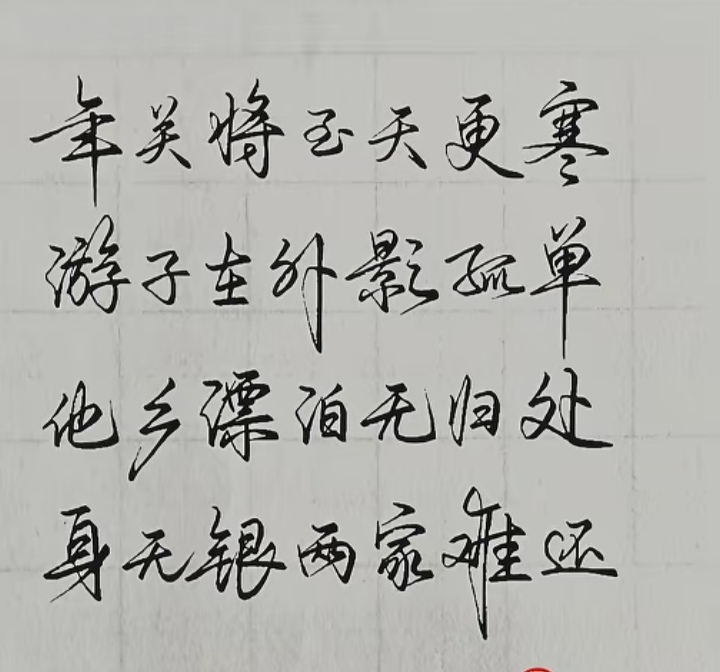 年关将至天更寒
游子在外影孤单
他乡漂泊无归处
身无银两家难还